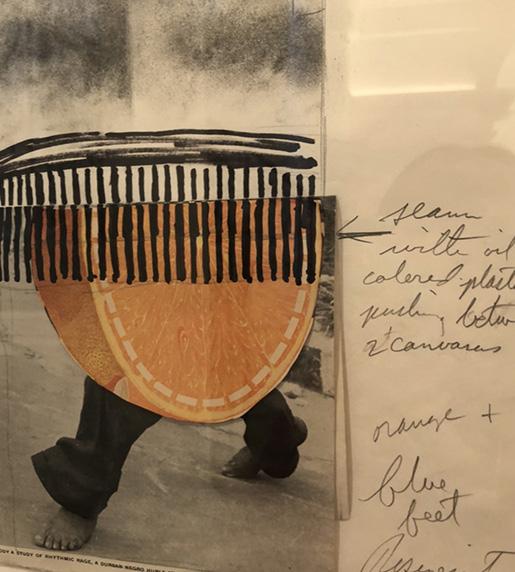 seam
with oil
colored plast
pushing betw
2 canvases
orange +
blue
feet
ODY A STUDY OF RHYTHMIC RAGE, A DURBAN NEGRO HURLS